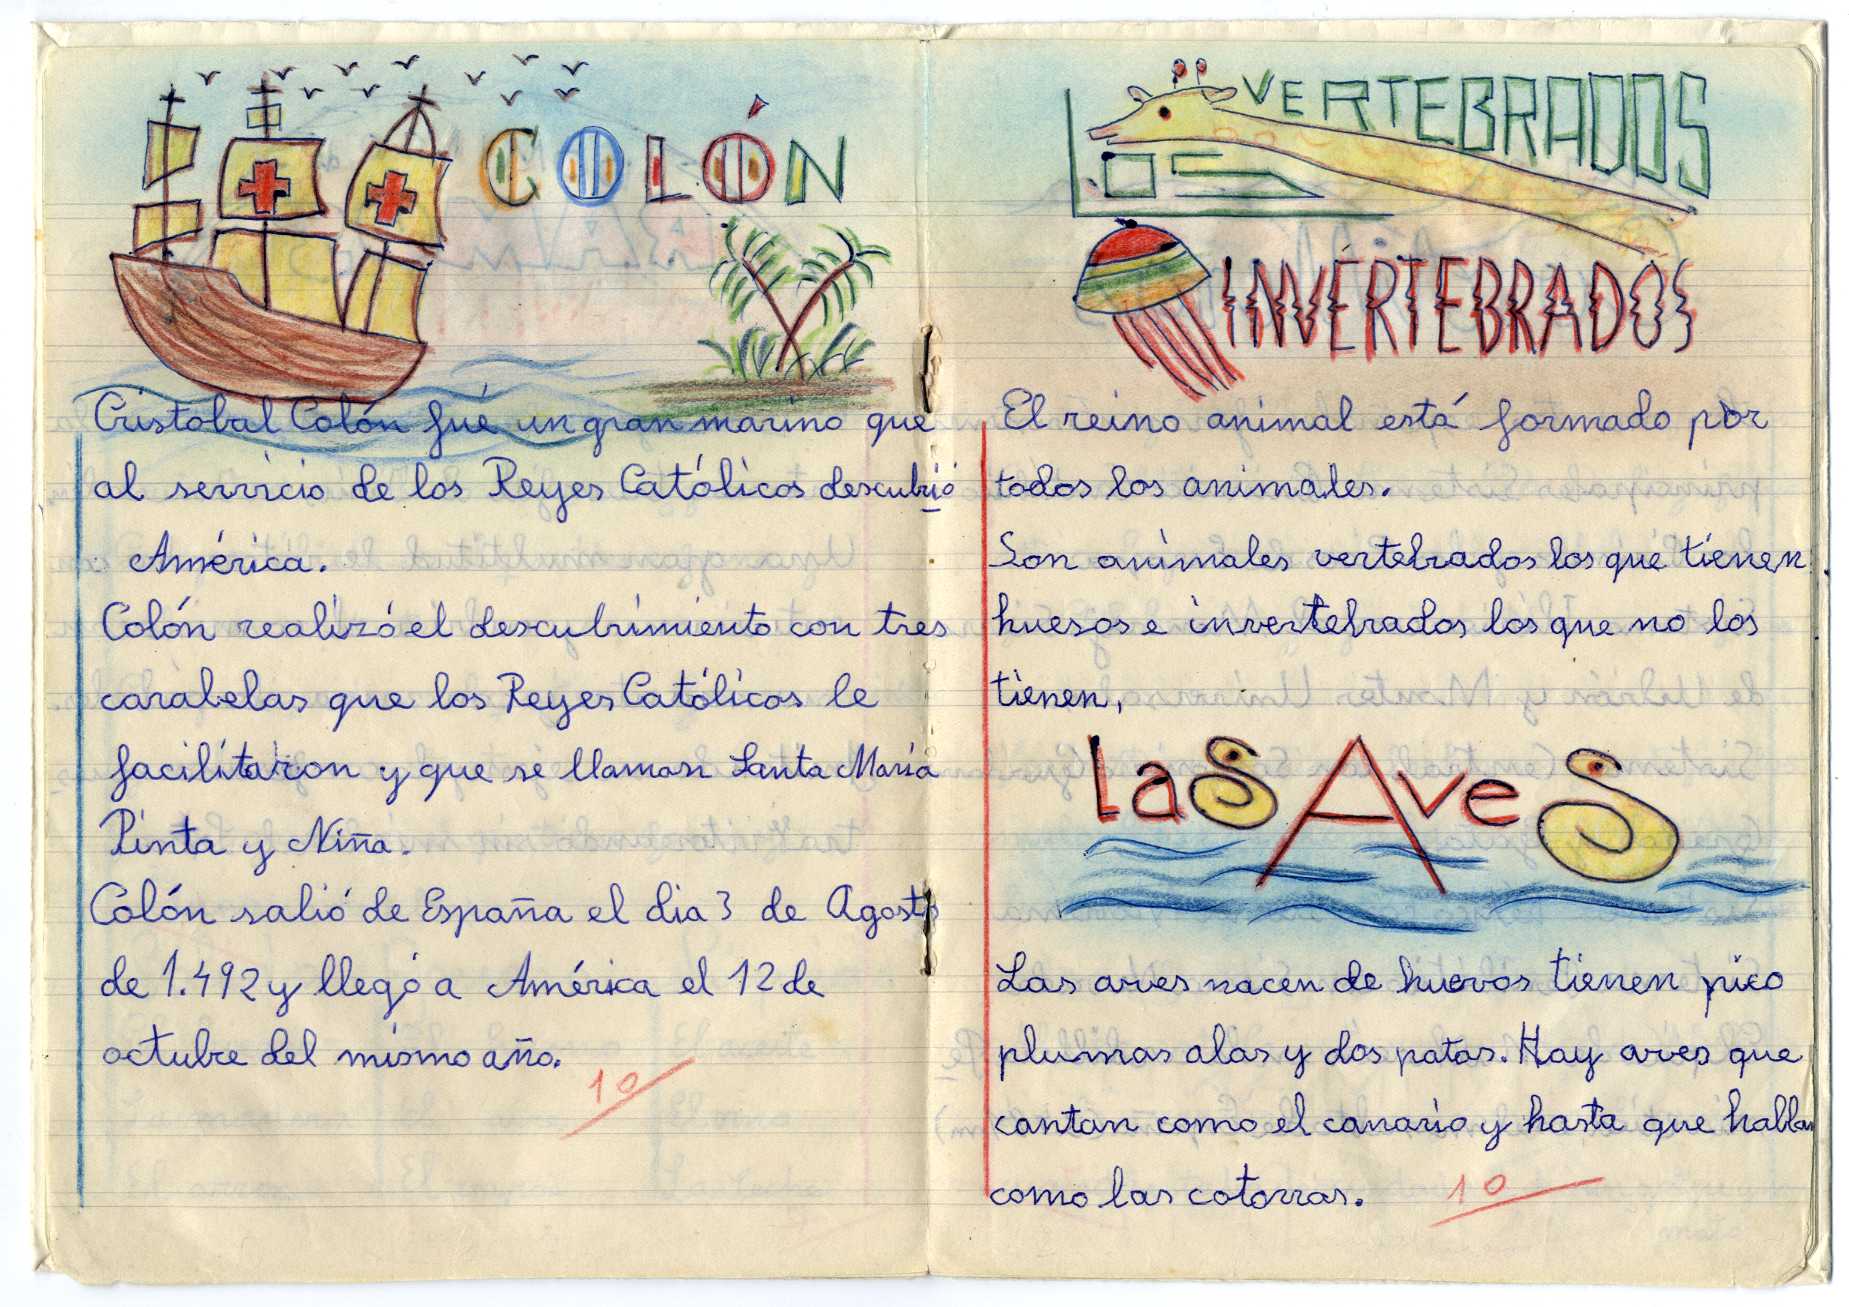 COLÓN
Cristobal Colón fué un gran marino que
al servicio de los Reyes Católicos descubrió
América.
Colón realizó el descubrimiento con tres
carabelas que los Reyes Católicos le
facilitaron y que se llaman Santa María
Pinta y Niña.
Colón salió de España el dia 3 de Agosto
de 1.492 y llegó a América el 12 de
octubre del mismo año.
10
LOS VERTEBRADOS
INVERTEBRADOS
El reino animal está formado por
todos los animales.
Son animales vertebrados los que tienen
huesos e invertebrados los que no los
tienen,
Las Aves
Las aves nacen de huevos tienen pico
plumas alas y dos patas. Hay aves que
cantan como el canario y hasta que hablan
como las cotorras.
10